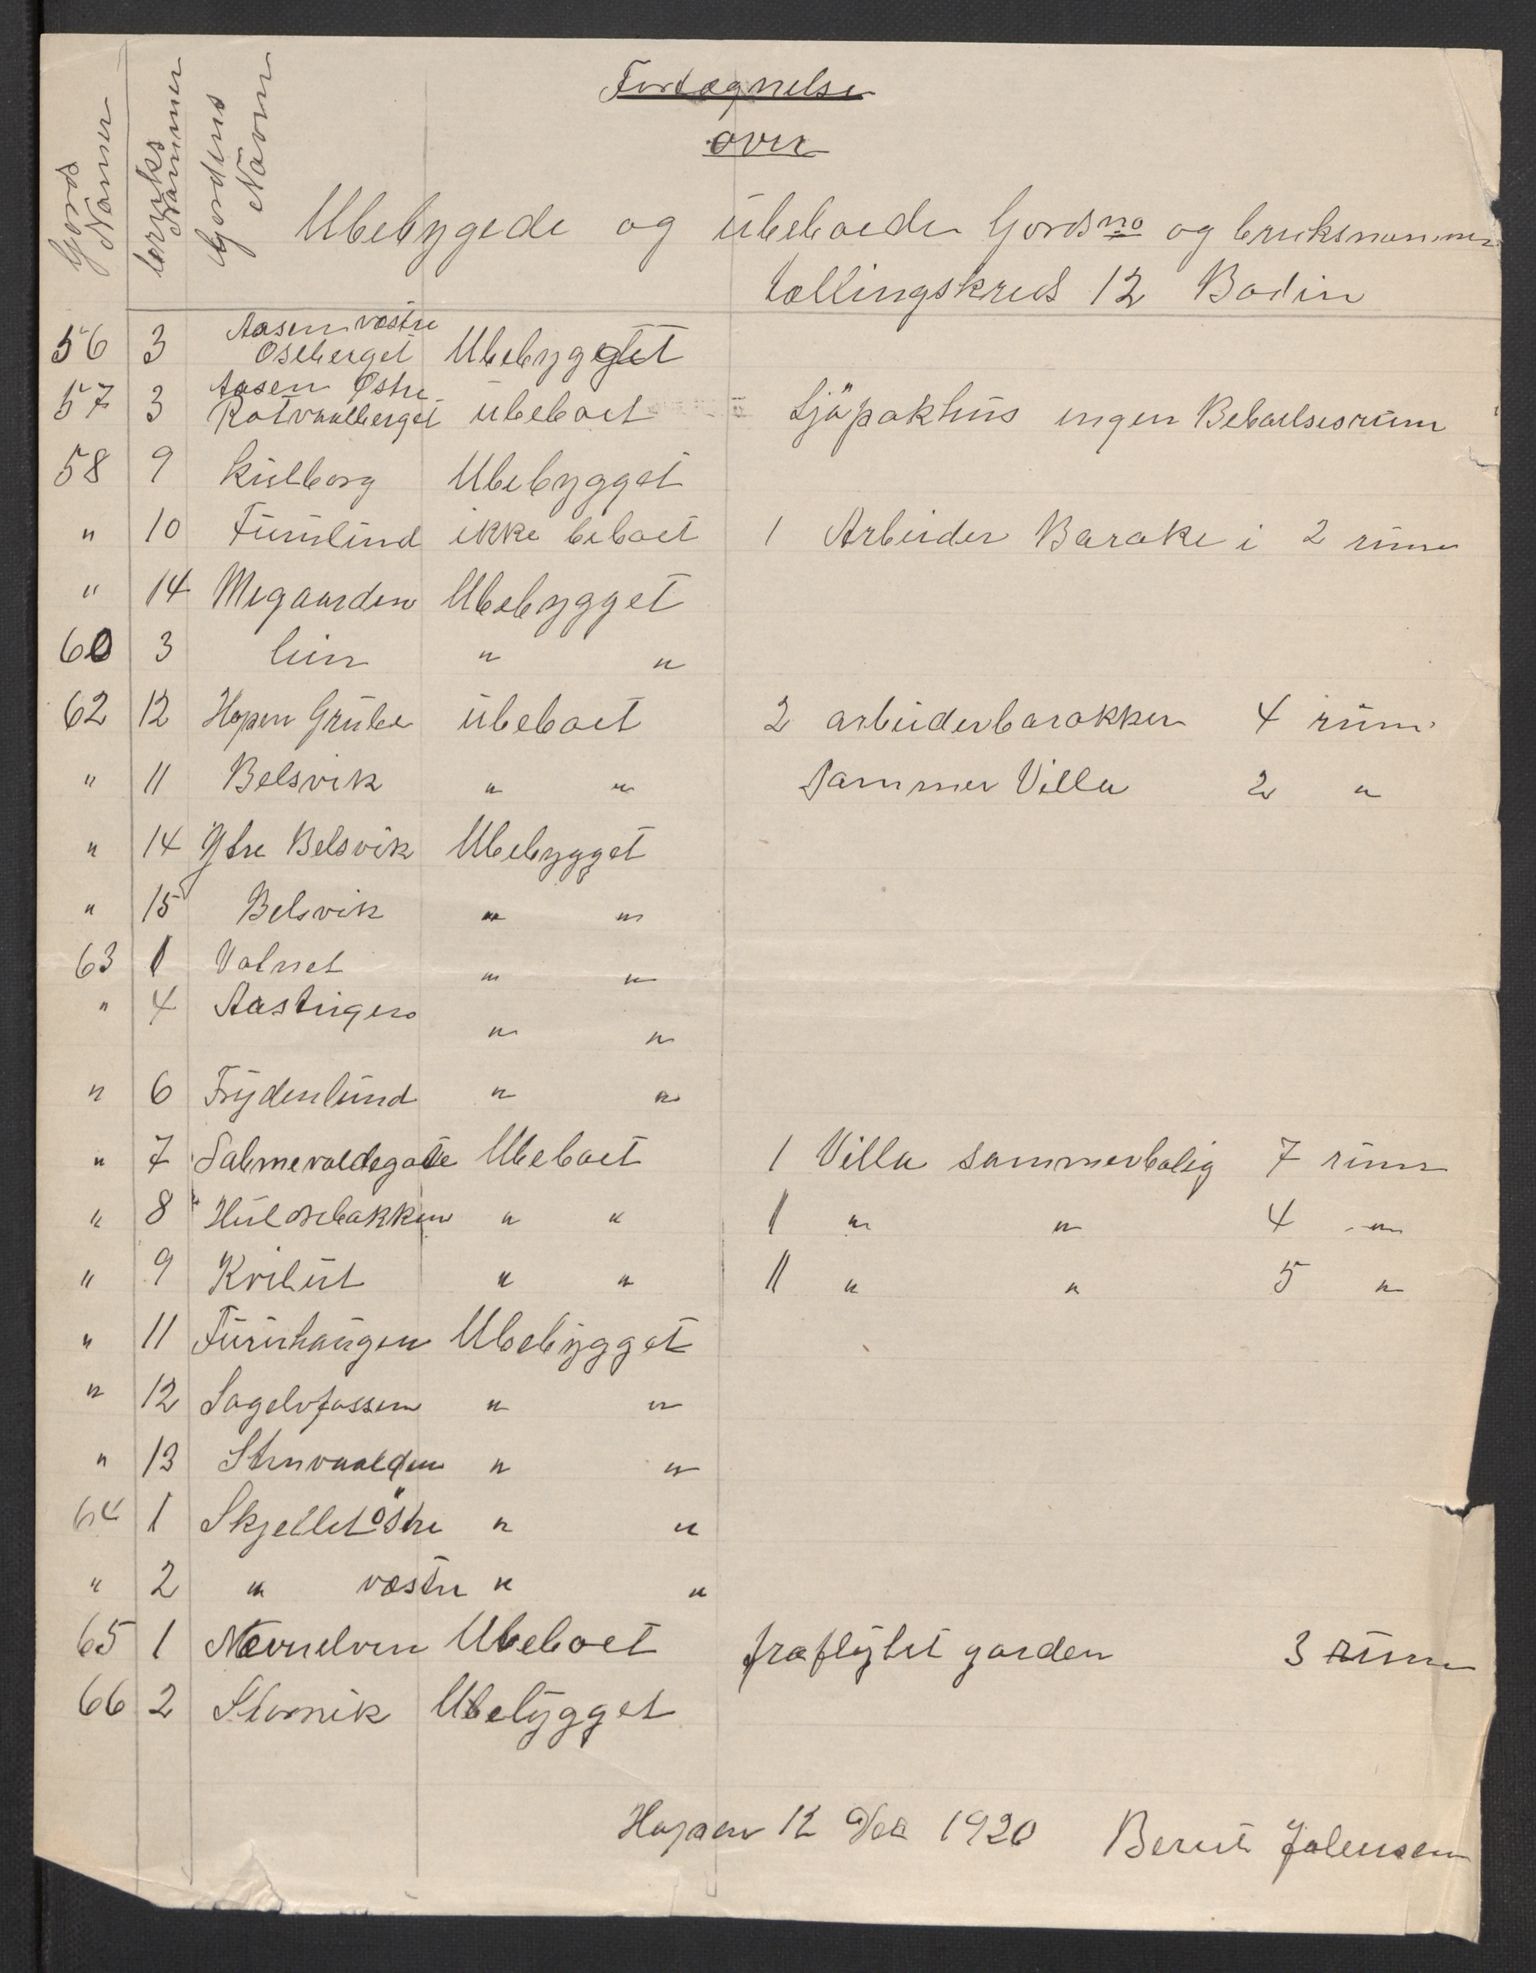 Fortegnelse
over
Ubebygede og ubeboede Gords no og bruksnummer
tællingskreds 12 Bodin
Gords Numer
bruks Nummer
Gordens Navn
56 3 Aasen vestre Oseberget Ubebygget
57 3 Aasen Østre Rotvaalberget ubeboet Sjöpakhus ingen Beboelsesrum
58 9 Kielborg Ubebygget
" 10 Furulund ikke beboet 1 Arbeider Barake i 2 rum
" 14 Megaarden Ubebygget
60 3 Lien " "
62 12 Hopen Grube ubeboet 2 arbeiderbarakker 4 rum
" 11 Belsvik " " Sommer Villa 2 "
" 14 Ytre Belsvik Ubebygget
" 15 Belsvik " "
63 1 Vatnet " "
" 4 Aastingen " "
" 6 Frydenlund " "
" 7 Ubeboet 1 Villa sommerbolig 7 rum
" 8 Huldrebakken " " 1 " " 4 "
" 9 Kvilut " " 1 " " 5 "
" 11 Furuhaugen Ubebygget
" 12 Sagelvfossen " "
" 13 Stenvaalden " "
64 1 Skjellet östre " "
" 2 " vestre " "
65 1 Næverelven Ubeboet fraflyttet garden 3 rum
66 2 Storvik Ubebygget
Hopen 12 Des 1920 Bernt Johensen